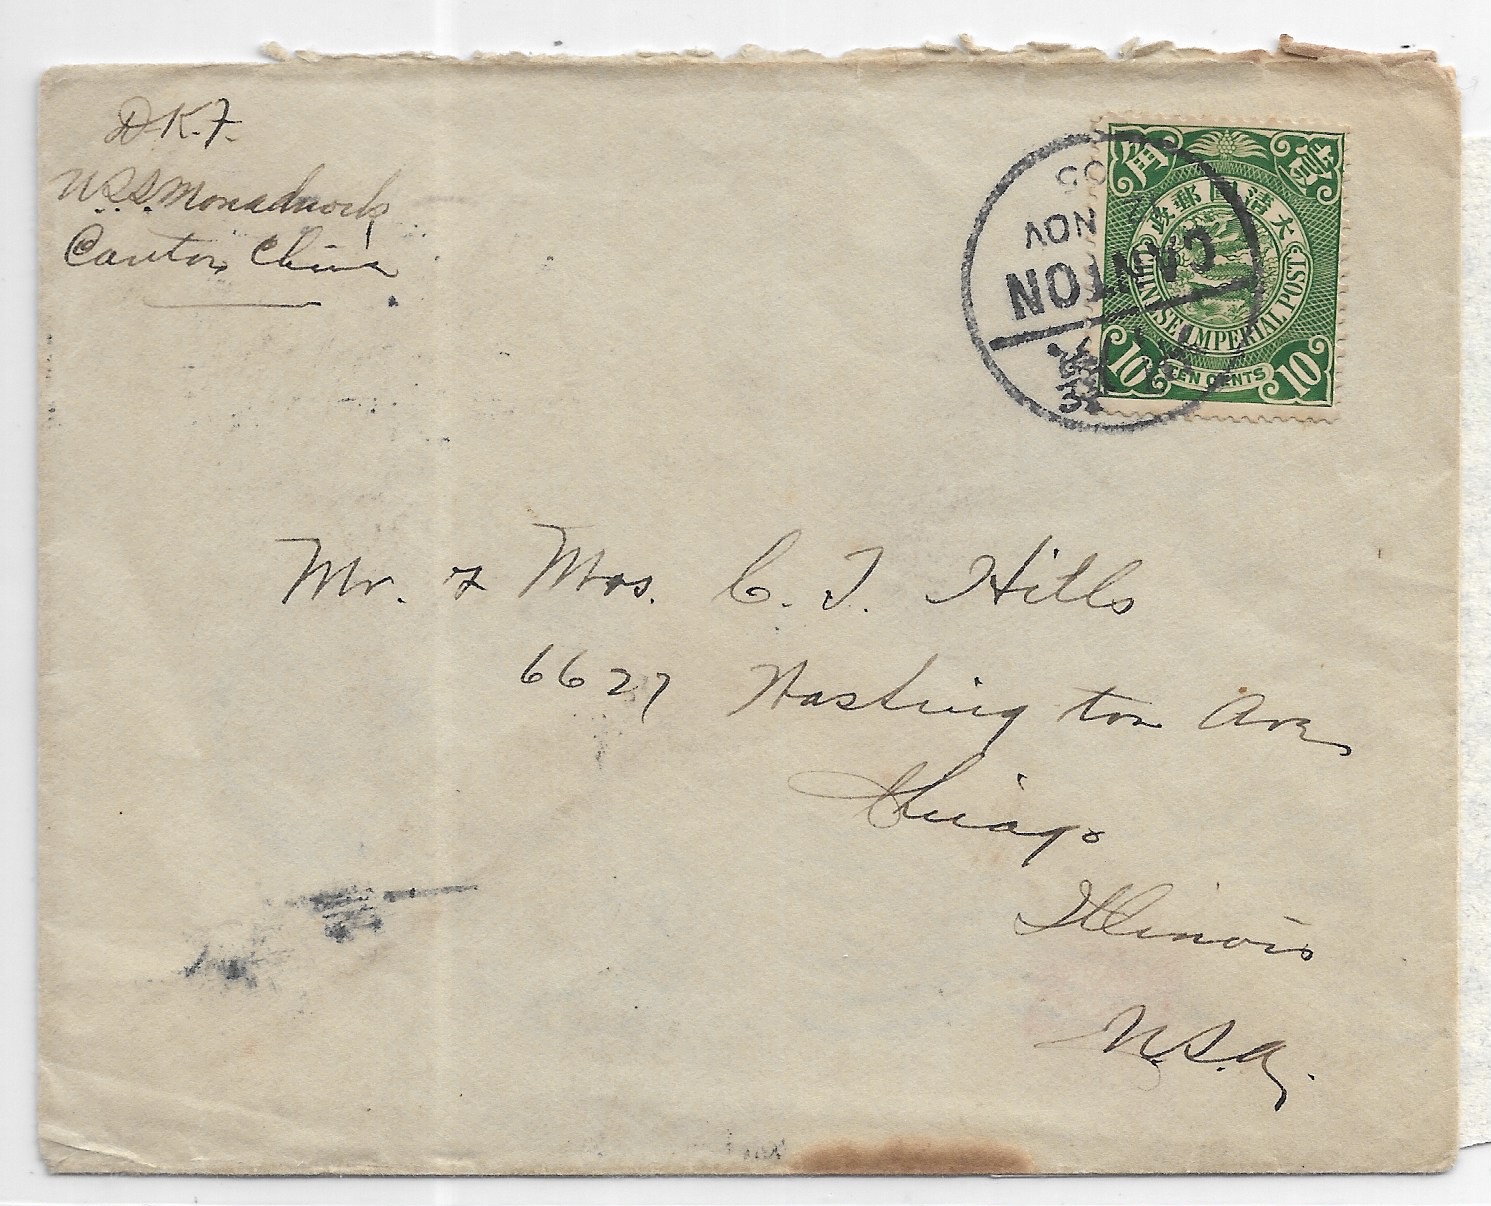 D.K.F.
U.S.S. Monadnock
Canton China
壹角
大清國郵政
CHINESE IMPERIAL POST
10 TEN CENTS 10
CANTON
NOV
05
Mr. & Mrs. C. T. Hills
6627 Washington Ave
Chicago
Illinois
U.S.A.